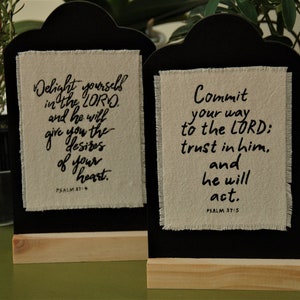 Delight yourself
in the LORD,
and he will
give you the
desires
of your
heart.
PSALM 37:4
Commit
your way
to the LORD;
trust in him,
and
he will
act.
PSALM 37:5